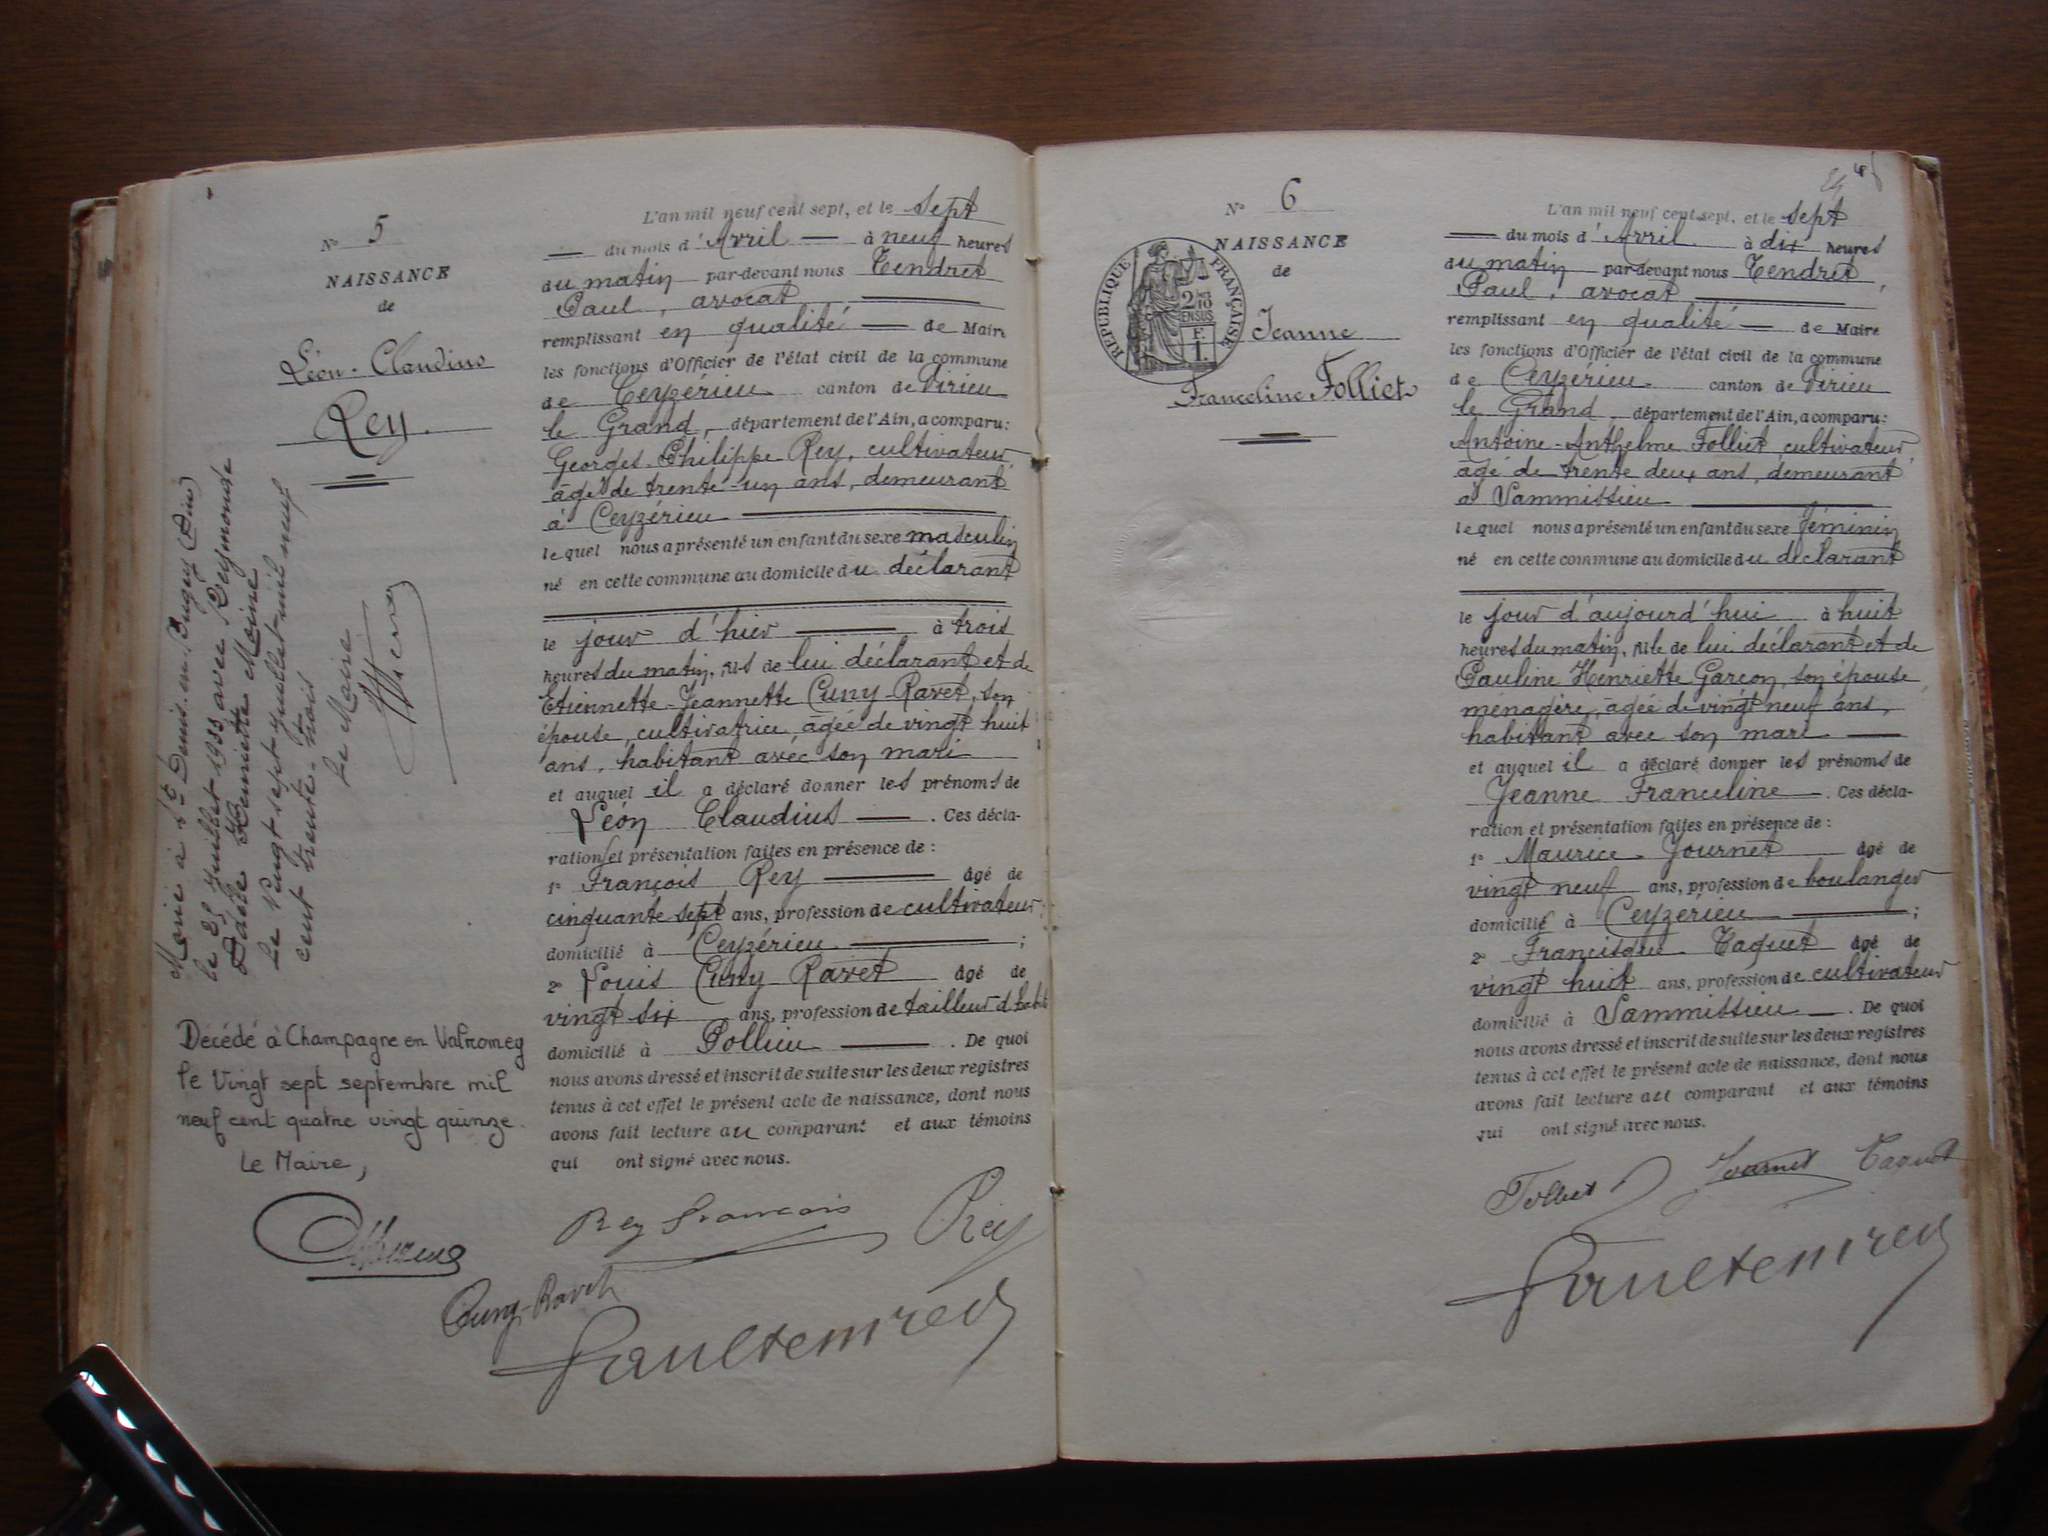 N° 5
NAISSANCE
de
Léon-Claudius
Rey.
Marié à St Denis-en-Bugey (Ain)
le 27 Juillet 1933 avec Reymonde
Henriette Moiné
Le Vingt sept Juillet mil neuf
cent trente-trois
Le Maire
Décédé à Champagne en Valromey
le Vingt sept septembre mil
neuf cent quatre vingt quinze.
Le Maire,
L'an mil neuf cent sept, et le sept
— du mois d'Avril — à neuf heures
du matin par-devant nous Tendret
Paul, avocat
remplissant en qualité — de Maire
les fonctions d'Officier de l'état civil de la commune
de Ceyzérieu canton de Virieu
le Grand, département de l'Ain, a comparu:
Georges-Philippe Rey, cultivateur,
âgé de trente-un ans, demeurant
à Ceyzérieu —
lequel nous a présenté un enfant du sexe masculin
né en cette commune au domicile du déclarant
le jour d'hier — à trois
heures du matin, fils de lui déclarant et de
Etiennette-Jeannette Cuny-Ravet, son
épouse, cultivatrice, âgée de vingt huit
ans, habitant avec son mari
et auquel il a déclaré donner les prénoms de
Léon Claudius — . Ces décla-
ration et présentation faites en présence de :
1° François Rey — âgé de
cinquante sept ans, profession de cultivateur
domicilié à Ceyzérieu — ;
2° Louis Cuny-Ravet âgé de
vingt six ans, profession de tailleur d'habit
domicilié à Pollieu — . De quoi
nous avons dressé et inscrit de suite sur les deux registres
tenus à cet effet le présent acte de naissance, dont nous
avons fait lecture au comparant et aux témoins
qui ont signé avec nous.
Rey François Rey
Cuny-Ravet
Paul Tendret
N° 6
NAISSANCE
de
RÉPUBLIQUE FRANÇAISE
2/10
EN SUS
F.
1.
Jeanne
Franceline Folliet
L'an mil neuf cent sept, et le sept
— du mois d'Avril à dix heures
du matin par-devant nous Tendret,
Paul, avocat —
remplissant en qualité — de Maire
les fonctions d'Officier de l'état civil de la commune
de Ceyzérieu canton de Virieu
le Grand, département de l'Ain, a comparu:
Antoine-Anthelme Folliet, cultivateur,
âgé de trente deux ans, demeurant
à Sammissieu —
lequel nous a présenté un enfant du sexe féminin
né en cette commune au domicile du déclarant
le jour d'aujourd'hui à huit
heures du matin, fille de lui déclarant et de
Pauline Henriette Garçon, son épouse
ménagère, âgée de vingt neuf ans,
habitant avec son mari —
et auquel il a déclaré donner les prénoms de
Jeanne Franceline — . Ces décla-
ration et présentation faites en présence de :
1° Maurice Journet âgé de
vingt neuf ans, profession de boulanger
domicilié à Ceyzérieu — ;
2° Francisque Taquet âgé de
vingt huit ans, profession de cultivateur
domicilié à Sammissieu — . De quoi
nous avons dressé et inscrit de suite sur les deux registres
tenus à cet effet le présent acte de naissance, dont nous
avons fait lecture au comparant et aux témoins
qui ont signé avec nous.
Folliet Journet Taquet
Paul Tendret